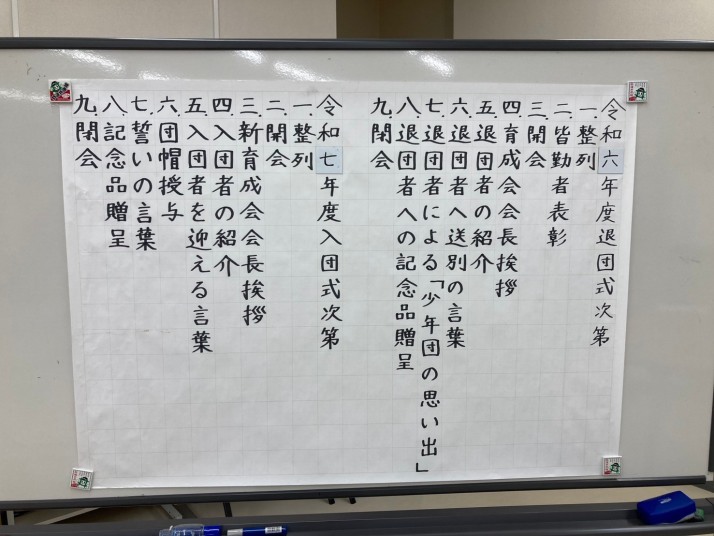 令和六年度退団式次第
一．整列
二．皆勤者表彰
三．開会
四．育成会会長挨拶
五．退団者の紹介
六．退団者へ送別の言葉
七．退団者による「少年団の思い出」
八．退団者への記念品贈呈
九．閉会
令和七年度入団式次第
一．整列
二．開会
三．新育成会会長挨拶
四．入団者の紹介
五．入団者を迎える言葉
六．団帽授与
七．誓いの言葉
八．記念品贈呈
九．閉会